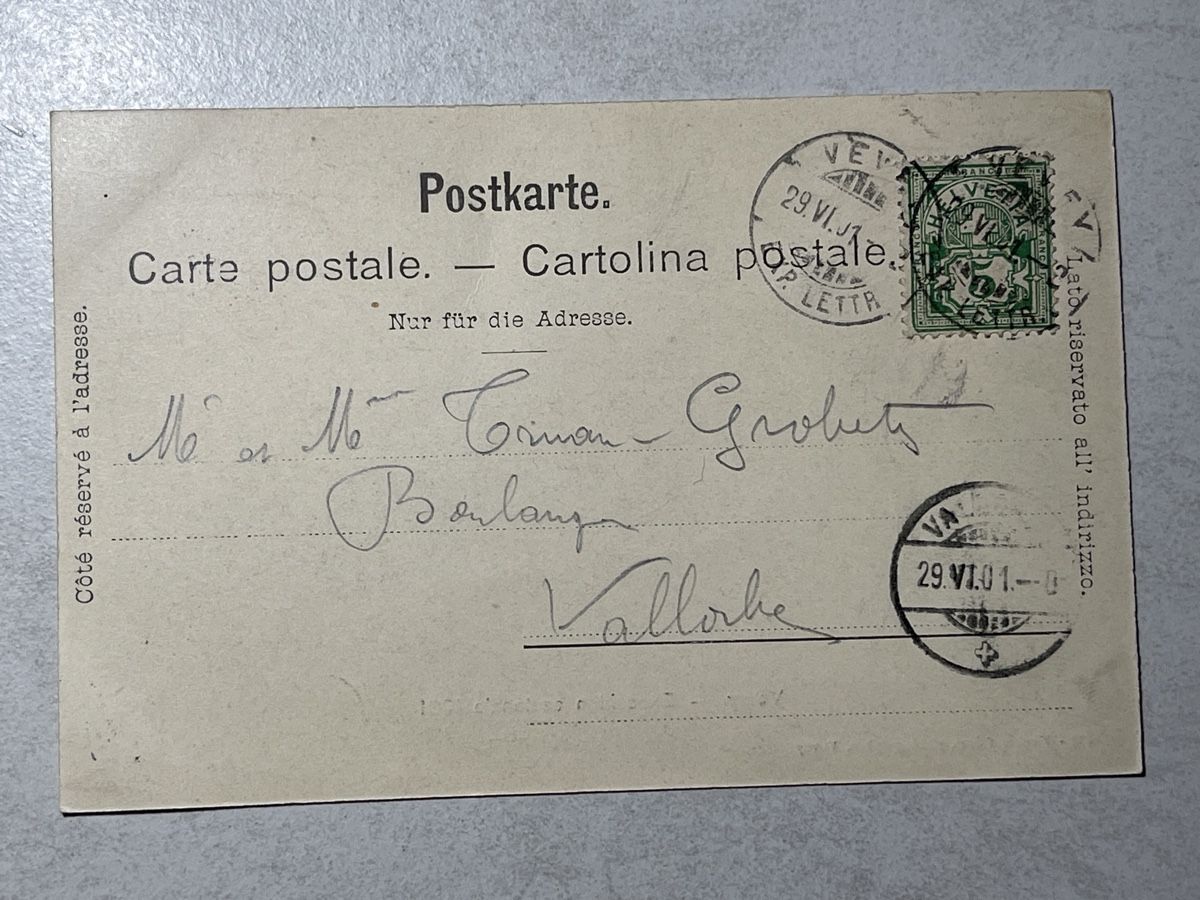 Postkarte.
Carte postale. — Cartolina postale.
Nur für die Adresse.
Côté réservé à l'adresse.
Lato riservato all' indirizzo.
VEVEY
29.VI.01
EXP. LETTR.
VEVEY
VI.01
LETTR.
FRANCO
HELVETIA
5
Mr et Mme Grobety
Boulanger
Vallorbe
VAL
29.VI.01.—8